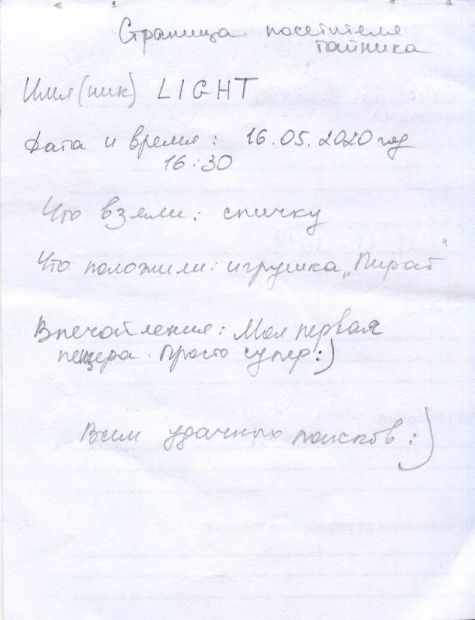 Страница посетителя
тайника
Имя (ник) LIGHT
Дата и время: 16.05.2020 год
16:30
Что взяли: спичку
Что положили: игрушка „Пират"
Впечатления: Моя первая
пещера. Просто супер:)
Всем удачных поисков:)